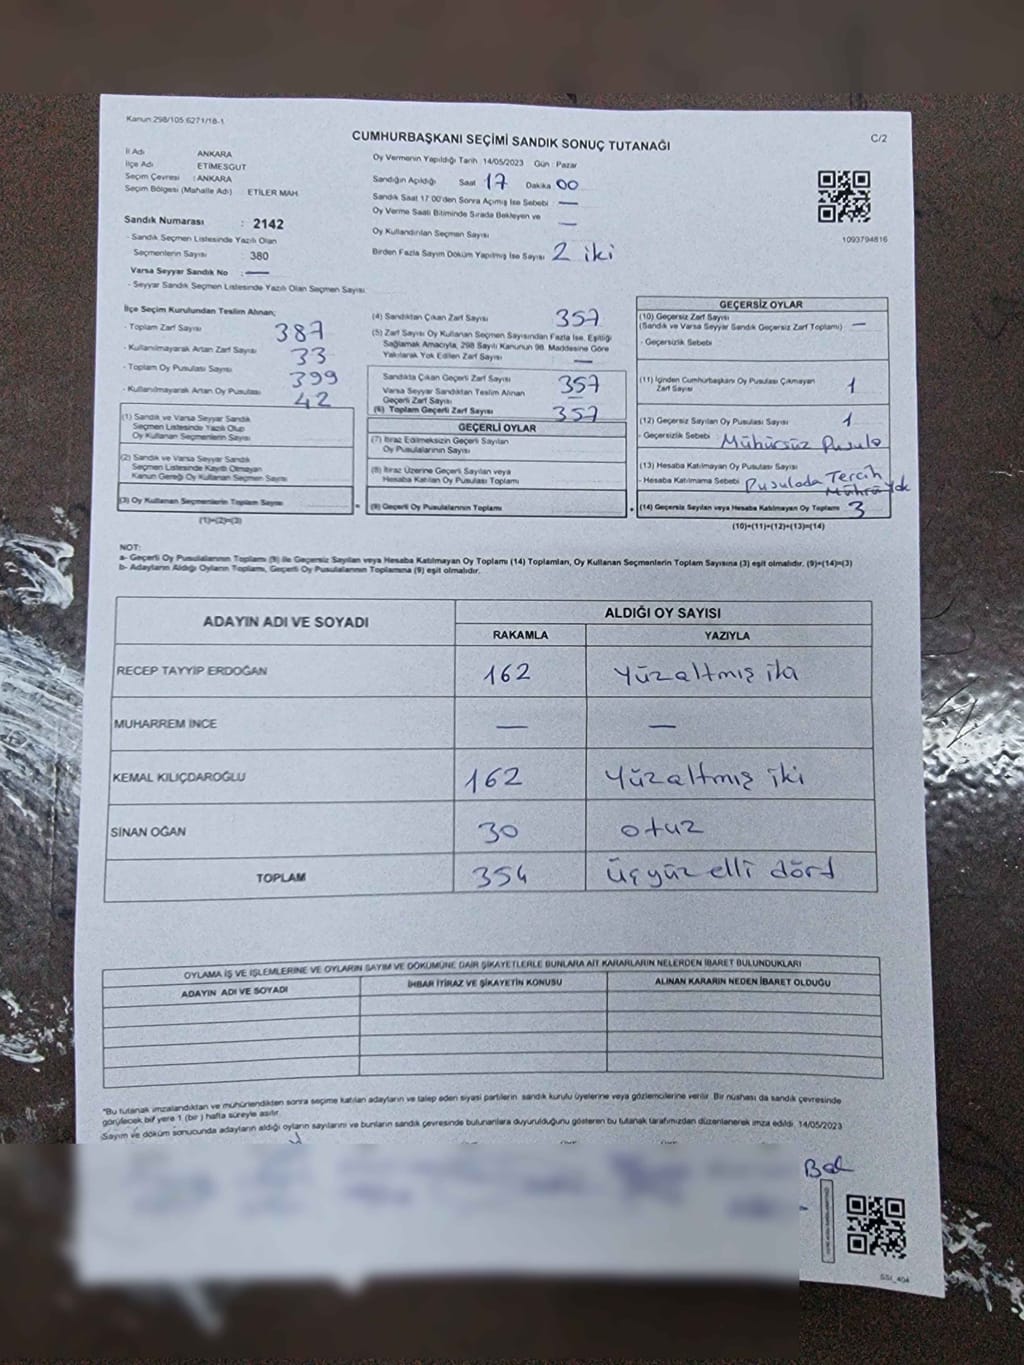 Kanun 298/105 6271/18-1
C/2
CUMHURBAŞKANI SEÇİMİ SANDIK SONUÇ TUTANAĞI
İl Adı ANKARA
İlçe Adı ETİMESGUT
Seçim Çevresi : ANKARA
Seçim Bölgesi (Mahalle Adı) ETİLER MAH.
Sandık Numarası : 2142
- Sandık Seçmen Listesinde Yazılı Olan
Seçmenlerin Sayısı : 380
Varsa Seyyar Sandık No : —
- Seyyar Sandık Seçmen Listesinde Yazılı Olan Seçmen Sayısı
Oy Vermenin Yapıldığı Tarih 14/05/2023 Gün : Pazar
Sandığın Açıldığı Saat 17 Dakika 00
Sandık Saat 17:00'den Sonra Açımış İse Sebebi : —
Oy Verme Saati Bitiminde Sırada Bekleyen ve —
Oy Kullandırılan Seçmen Sayısı
Birden Fazla Sayım Döküm Yapılmış İse Sayısı 2 iki
1093794816
İlçe Seçim Kurulundan Teslim Alınan;
- Toplam Zarf Sayısı 387
- Kullanılmayarak Artan Zarf Sayısı 33
- Toplam Oy Pusulası Sayısı 399
- Kullanılmayarak Artan Oy Pusulası 42
(1) Sandık ve Varsa Seyyar Sandık
Seçmen Listesinde Yazılı Olup
Oy Kullanan Seçmenlerin Sayısı
(2) Sandık ve Varsa Seyyar Sandık
Seçmen Listesinde Kayıtlı Olmayan
Kanun Gereği Oy Kullanan Seçmen Sayısı
(3) Oy Kullanan Seçmenlerin Toplam Sayısı
(1)+(2)=(3)
(4) Sandıktan Çıkan Zarf Sayısı 357
(5) Zarf Sayısı Oy Kullanan Seçmen Sayısından Fazla İse, Eşitliği
Sağlamak Amacıyla, 298 Sayılı Kanunun 98. Maddesine Göre
Yakılarak Yok Edilen Zarf Sayısı —
Sandıkta Çıkan Geçerli Zarf Sayısı 357
Varsa Seyyar Sandıktan Teslim Alınan
Geçerli Zarf Sayısı —
(6) Toplam Geçerli Zarf Sayısı 357
GEÇERLİ OYLAR
(7) İtiraz Edilmeksizin Geçerli Sayılan
Oy Pusulalarının Sayısı
(8) İtiraz Üzerine Geçerli Sayılan veya
Hesaba Katılan Oy Pusulası Toplamı
= (9) Geçerli Oy Pusulalarının Toplamı +
GEÇERSİZ OYLAR
(10) Geçersiz Zarf Sayısı
(Sandık ve Varsa Seyyar Sandık Geçersiz Zarf Toplamı) —
- Geçersizlik Sebebi
(11) İçinden Cumhurbaşkanı Oy Pusulası Çıkmayan
Zarf Sayısı 1
(12) Geçersiz Sayılan Oy Pusulası Sayısı 1
- Geçersizlik Sebebi Mühürsüz Pusula
(13) Hesaba Katılmayan Oy Pusulası Sayısı
- Hesaba Katılmama Sebebi Pusulada Tercih
Mührü Yok
(14) Geçersiz Sayılan veya Hesaba Katılmayan Oy Toplamı 3
(10)+(11)+(12)+(13)=(14)
NOT:
a- Geçerli Oy Pusulalarının Toplamı (9) ile Geçersiz Sayılan veya Hesaba Katılmayan Oy Toplamı (14) Toplamları, Oy Kullanan Seçmenlerin Toplam Sayısına (3) eşit olmalıdır. (9)+(14)=(3)
b- Adayların Aldığı Oyların Toplamı, Geçerli Oy Pusulalarının Toplamına (9) eşit olmalıdır.
ADAYIN ADI VE SOYADI
ALDIĞI OY SAYISI
RAKAMLA YAZIYLA
RECEP TAYYİP ERDOĞAN 162 Yüzaltmış iki
MUHARREM İNCE — —
KEMAL KILIÇDAROĞLU 162 Yüzaltmış iki
SİNAN OĞAN 30 otuz
TOPLAM 354 üçyüz elli dört
OYLAMA İŞ VE İŞLEMLERİNE VE OYLARIN SAYIM VE DÖKÜMÜNE DAİR ŞİKAYETLERLE BUNLARA AİT KARARLARIN NELERDEN İBARET BULUNDUKLARI
ADAYIN ADI VE SOYADI İHBAR İTİRAZ VE ŞİKAYETİN KONUSU ALINAN KARARIN NEDEN İBARET OLDUĞU
"Bu tutanak imzalandıktan ve mühürlendikten sonra seçime katılan adayların ve talep eden siyasi partilerin sandık kurulu üyelerine veya gözlemcilerine verilir. Bir nüshası da sandık çevresinde
görülecek bir yere 1 (bir) hafta süreyle asılır.
Sayım ve döküm sonucunda adayların aldığı oyların sayılarını ve bunların sandık çevresinde bulunanlara duyurulduğunu gösteren bu tutanak tarafımızdan düzenlenerek imza edildi. 14/05/2023
SSI_404